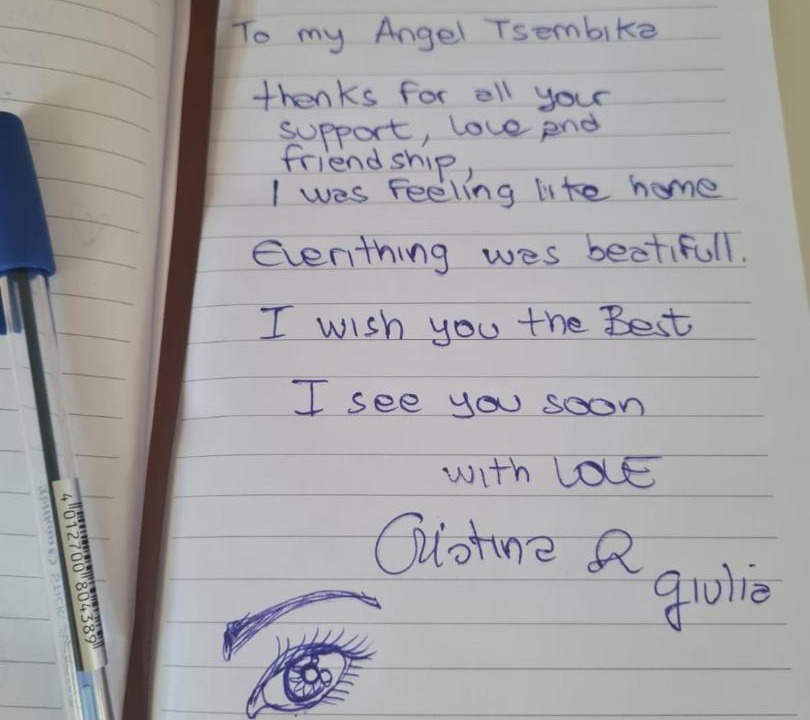 To my Angel Tsambika
thanks for all your
support, love and
friendship,
I was feeling like home
Everithing was beatifull.
I wish you the Best
I see you soon
with LOVE
Cristina &
giulia
4 012700 804389